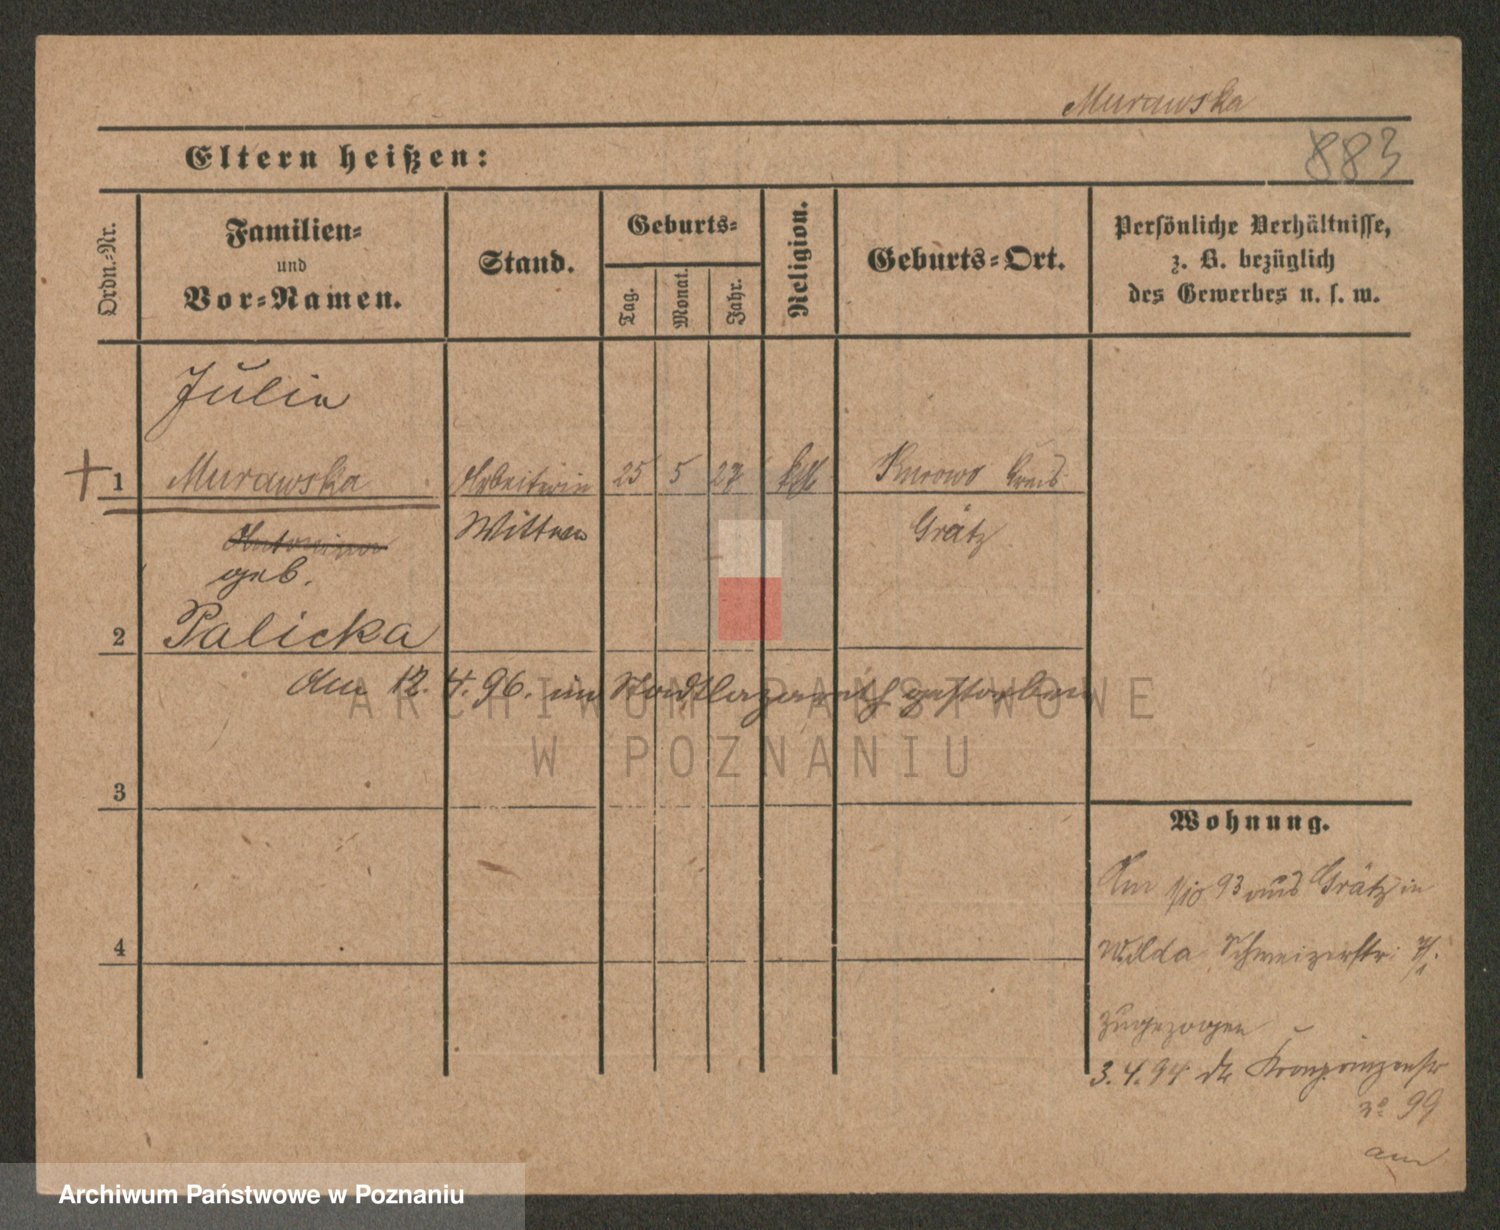 Murawska
Eltern heißen:
883
Ordn.-Nr.
Familien-
und
Vor-Namen.
Stand.
Geburts-
Tag.
Monat.
Jahr.
Religion.
Geburts-Ort.
Persönliche Verhältnisse,
z. B. bezüglich
des Gewerbes u. s. w.
Julia
1 Murawska Arbeiterin 25 5 27 kth Kurowo Kreis
Wittwe Grätz
Antonina
geb.
2 Palicka
Am 12. 4. 96. im Stadtlazareth gestorben
ARCHIWUM PAŃSTWOWE
W POZNANIU
3
Wohnung.
Am 1/10 93 aus Grätz in
4
Wilda Schweizerstr.
zugezogen
3. 4. 94 Kronprinzenstr
no 99
am
Archiwum Państwowe w Poznaniu